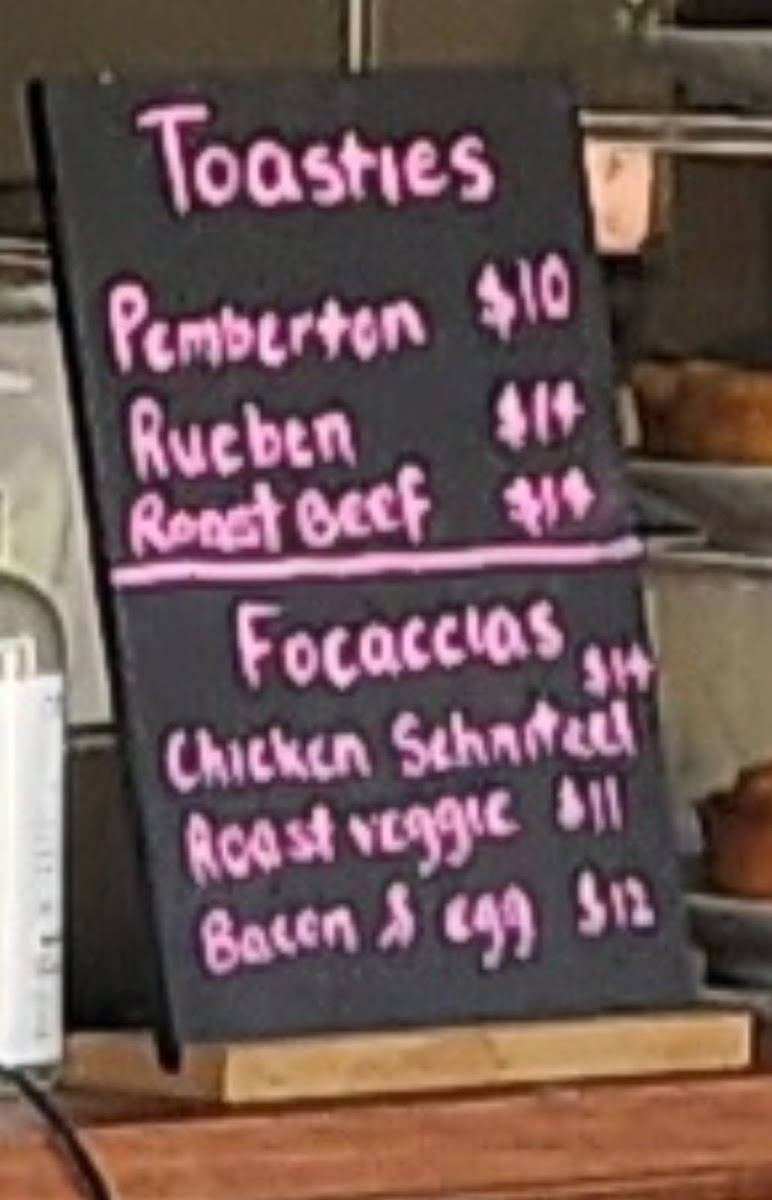 Toasties
Pemberton $10
Rueben $14
Roast Beef $14
Focaccias
$14
Chicken Schnitzel
Roast veggie $11
Bacon & egg $12